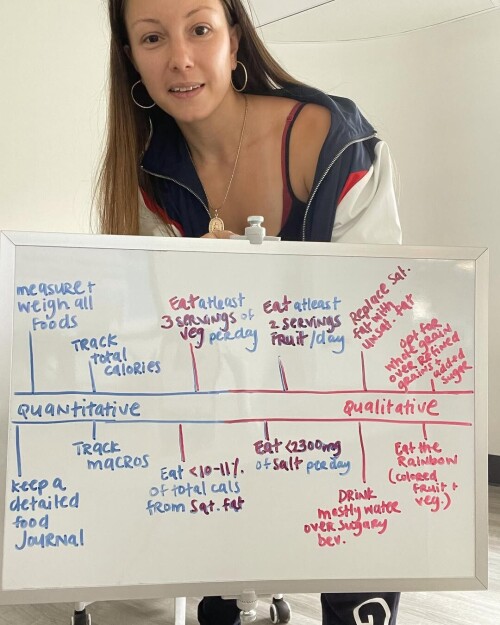 measure +
weigh all
foods
TRACK
total
CALORIES
Eat atleast
3 servings of
veg per day
Eat atleast
2 servings
FRUIT/day
Replace Sat.
fat with
unsat. fat
opt for
whole grain
over refined
grains +
added
sugar
QUANTITATIVE
QUALITATIVE
keep a
detailed
food
Journal
TRACK
macros
Eat <10-11%
of total cals
from Sat. fat
Eat <2300mg
of salt per day
DRINK
mostly water
over sugary
bev.
Eat the
RAINBOW
(colored
fruit +
veg.)